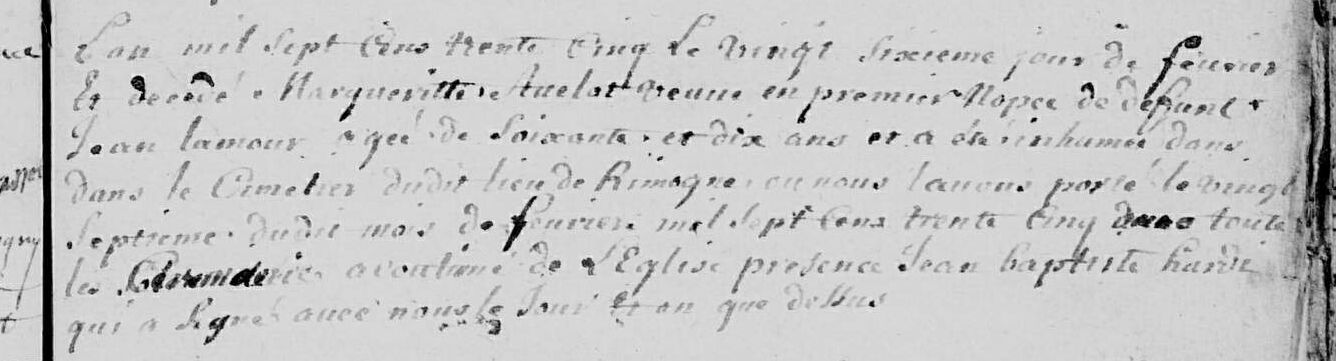 L'an mil sept cens trente cinq le vingt sixieme jour de fevrier
Et decedé Margueritte Auelot veuve en premier Nopce de deffunt
Jean lamour agée de soixante et dix ans et a été inhumée dans
dans le Cimetier dudit lieu de Rimogne ou nous lavons porté le vingt
septieme dudit mois de fevrier mil sept cens trente cinq avec toute
les Ceremonies acoutumé de L'Eglise presence Jean baptiste hardi
qui a signé avec nous le Jour Et an que dessus